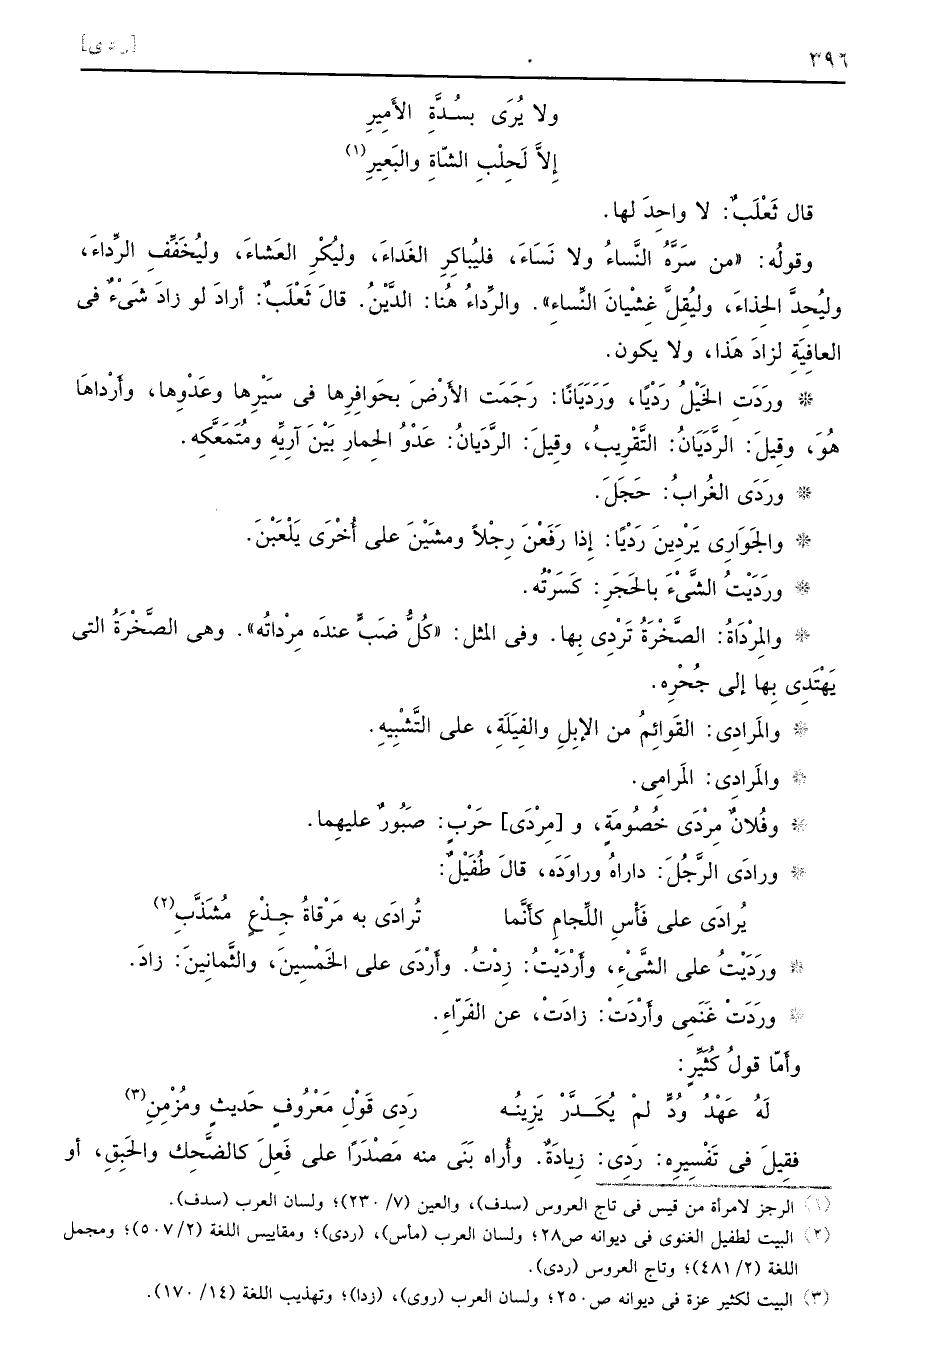 ٣٩٦
ولا يُرَى بسُدَّةِ الأَمِيرِ
إِلاَّ لَحِلْبِ الشّاةِ والبَعِيرِ(١)
قال ثَعْلَبٌ: لا واحِدَ لها.
وقولُه: «من سَرَّهُ النَّساءُ ولا نَسَاءَ، فليُباكِرِ الغَداءَ، وليُكْرِ العَشاءَ، وليُخَفِّفِ الرِّداءَ،
وليُحِدَّ الحِذاءَ، وليُقِلَّ غشيانَ النِّساءِ». والرِّداءُ هُنا: الدَّيْنُ. قالَ ثَعْلَبٌ: أرادَ لو زادَ شَىْءٌ فى
العافيَةِ لزادَ هَذا، ولا يكون.
* ورَدَتِ الخَيْلُ رَدْيًا، ورَدَيَانًا: رَجَمَت الأَرْضَ بحَوافِرِها فى سَيْرِها وعَدْوِها، وأَرْداهَا
هُوَ، وقيلَ: الرَّدَيَانُ: التَّقْرِيبُ، وقيلَ: الرَّدَيانُ: عَدْوُ الحِمارِ بَيْنَ آرِيِّه ومُتَمَعَّكِه.
* ورَدَى الغُرابُ: حَجَلَ.
* والجَوَارِى يَرْدِينَ رَدْيًا: إذا رَفَعْنَ رِجْلاً ومشَيْنَ على أُخْرَى يَلْعَبْنَ.
* ورَدَيْتُ الشَّىْءَ بالحَجَرِ: كَسَرْتُه.
* والمِرْدَاةُ: الصَّخْرَةُ تَرْدِى بِها. وفى المثل: «كُلُّ ضَبٍّ عندَه مِرْداتُه». وهى الصَّخْرَةُ التى
يَهْتَدِى بِها إلى جُحْرِه.
* والمَرادِى: القَوائِمُ من الإبِلِ والفِيَلَةِ، على التَّشْبِيهِ.
* والمَرادِى: المَرامِى.
* وفُلانٌ مِرْدَى خُصُومَةٍ، و [مِرْدَى] حَرْبٍ: صَبُورٌ عليهما.
* ورادَى الرَّجُلَ: داراهُ وراوَدَه، قالَ طُفَيْلٌ:
يُرادَى على فَأْسِ اللِّجامِ كأَنَّما تُرادَى به مَرْقاةُ جِذْعٍ مُشَذَّبِ(٢)
* وردَيْتُ على الشَّىْءِ، وأَرْدَيْتُ: زِدْتُ. وأَرْدَى على الخَمْسِينَ، والثَّمانِينَ: زادَ.
* ورَدَتْ غَنَمِى وأَرْدَتْ: زادَتْ، عن الفَرّاءِ.
وأمّا قولُ كُثَيِّرٍ:
لَهُ عَهْدُ وُدٍّ لمْ يُكَدَّرْ يَزِينُه رَدِى قَوْلِ مَعْرُوفٍ حَديثٍ ومُزْمِنِ(٣)
فقِيلَ فى تَفْسِيرِه: رَدِى: زِيادَةٌ. وأُراه بَنَى منه مَصْدَرًا على فَعِلَ كالضَّحِك والحَبِقِ، أو
(١) الرجز لامرأة من قيس فى تاج العروس (سدف)، والعين (٧/ ٢٣٠)؛ ولسان العرب (سدف).
(٢) البيت لطفيل الغنوى فى ديوانه ص٢٨؛ ولسان العرب (مأس)، (ردى)؛ ومقاييس اللغة (٥٠٧/٢)؛ ومجمل
اللغة (٢/ ٤٨١)؛ وتاج العروس (ردى).
(٣) البيت لكثير عزة فى ديوانه ص٢٥٠؛ ولسان العرب (روى)، (زدا)؛ وتهذيب اللغة (١٤/ ١٧٠).